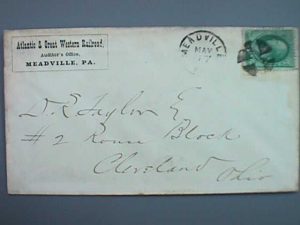 Atlantic & Great Western Railroad,
Auditor's Office,
MEADVILLE, PA.
MEADVILLE
MAY
D. E. Taylor E
# 2 Rouse Block
Cleveland
Ohio